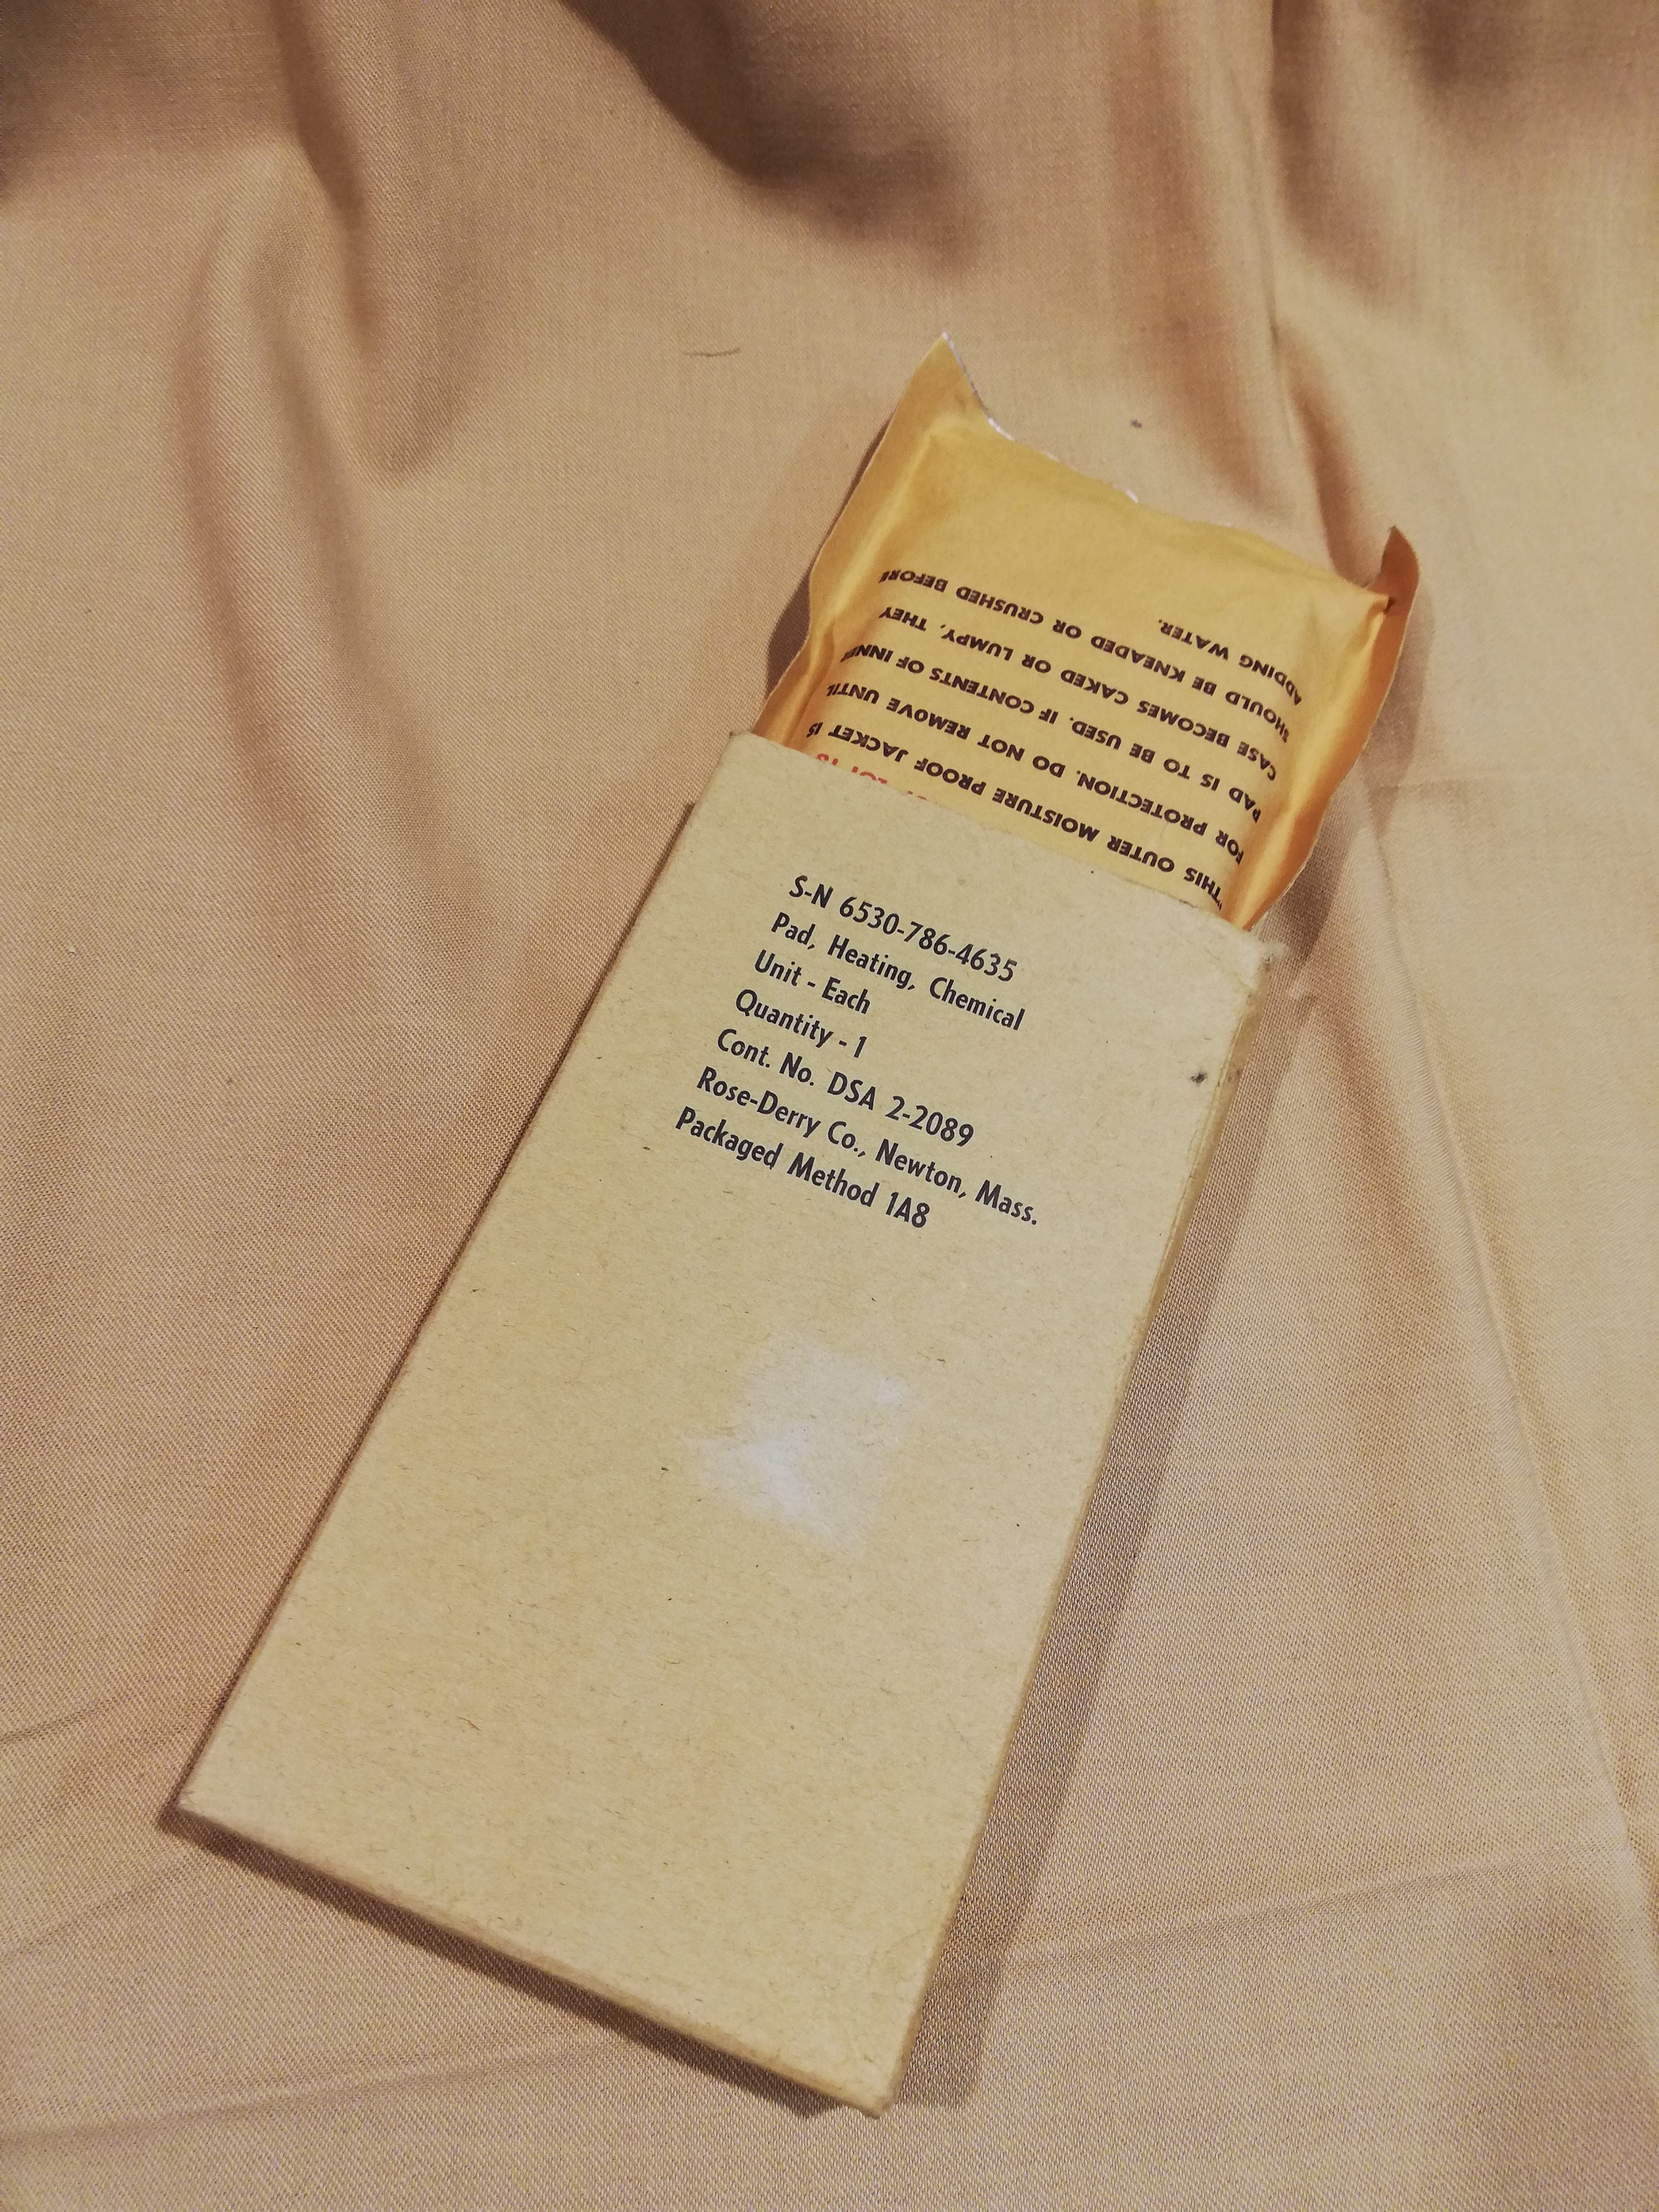 S-N 6530-786-4635
Pad, Heating, Chemical
Unit - Each
Quantity - 1
Cont. No. DSA 2-2089
Rose-Derry Co., Newton, Mass.
Packaged Method 1A8
"THIS OUTER MOISTURE PROOF JACKET IS
FOR PROTECTION. DO NOT REMOVE UNTIL
PAD IS TO BE USED. IF CONTENTS OF INNER
CASE BECOMES CAKED OR LUMPY, THEY
SHOULD BE KNEADED OR CRUSHED BEFORE
ADDING WATER.